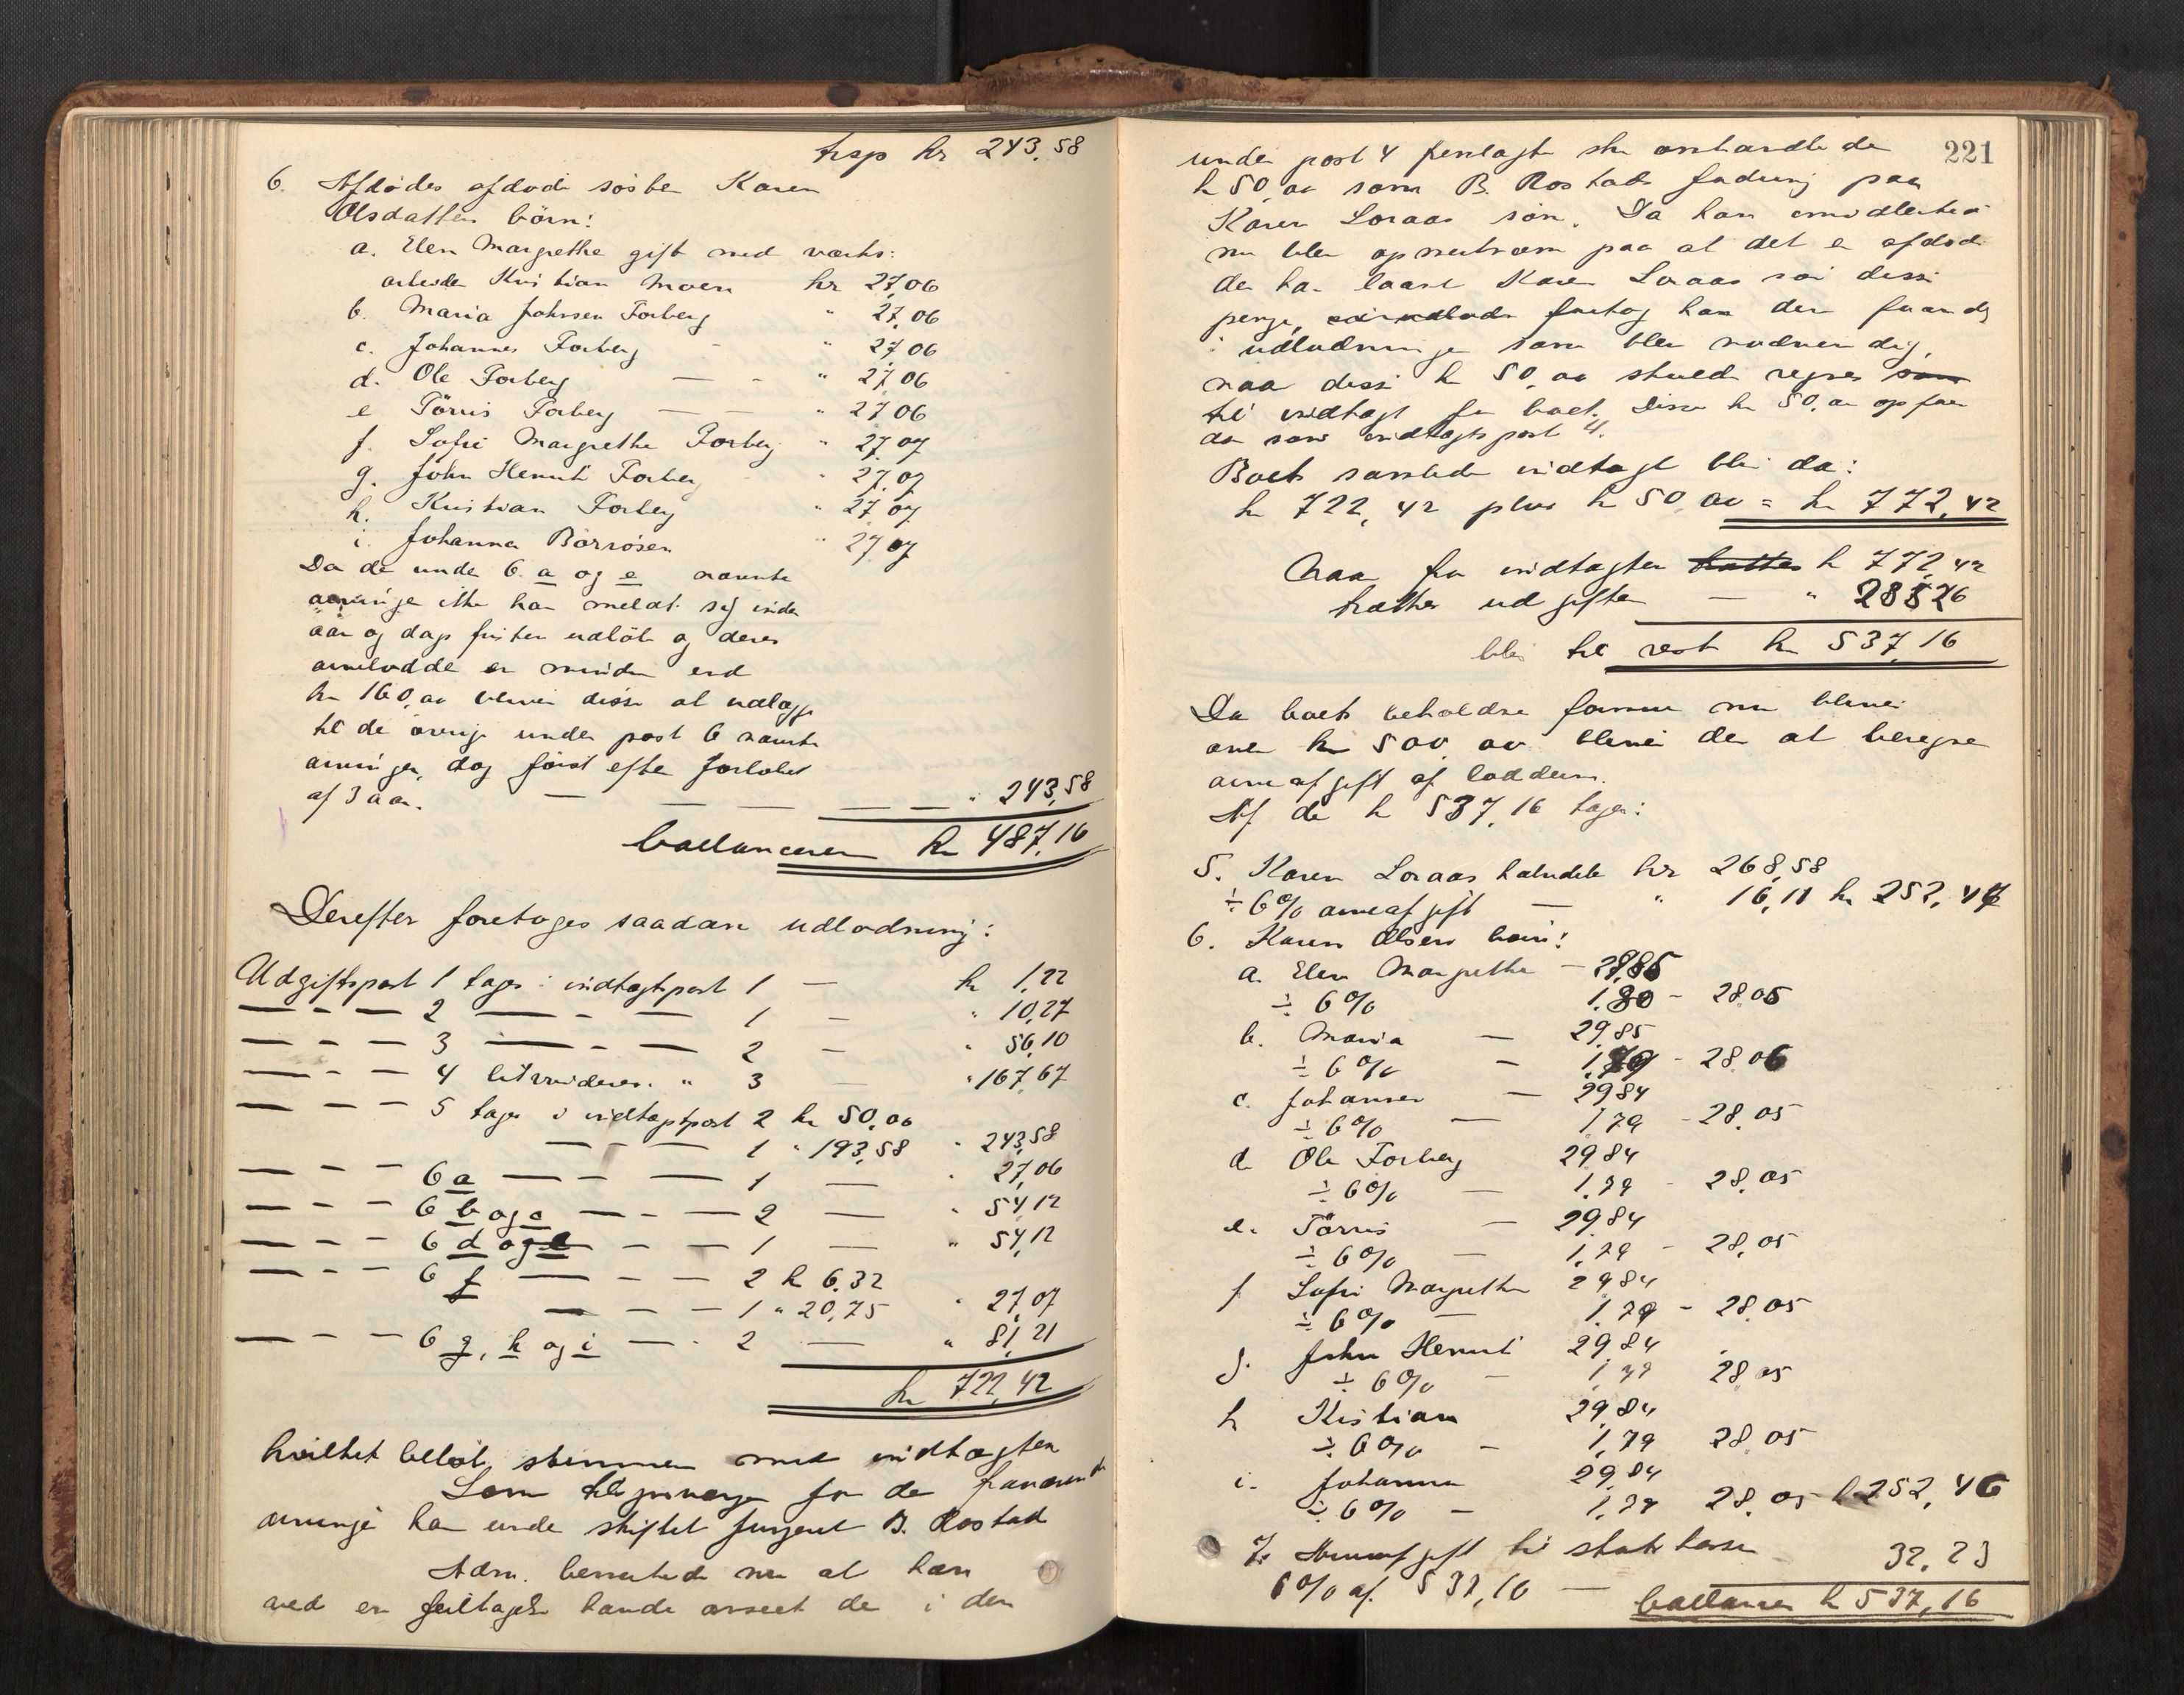 trsp kr 243,58
6. Afdødes afdøde søster Karen
Olsdatters børn:
a. Elen Margrethe gift med værks:
arbeider Kristian Moen kr 27,06
b. Maria Johnsen Forberg " 27,06
c. Johannes Forberg - " 27,06
d. Ole Forberg — - " 27,06
e Törris Forberg — — " 27,06
f. Sofie Margrethe Forberg " 27,07
g. John Henrik Forberg " 27,07
h. Kristian Forberg " 27,07
i. Johanna Borrösen " 27,07
Da de under 6. a og e nævnte
arvinge ikke har meldt sig inden
aar og dags fristen udløb og deres
arvelodde er mindre end
kr 160,00 blever disse at udlægge
til de øvrige under post 6 nævnte
arvinger, dog først efter forløbet
af 3 aar. — — — — — " 243,58
ballancerer kr 487,16
Derefter foretoges saadan udlodning:
Udgiftspost 1 tages i indtægtspost 1 — kr 1,22
— — — 2 — - — 1 — " 10,27
— — — 3 — - — 2 — " 56,10
— — — 4 " 3 — " 167,67
— — — 5 tages i indtægtspost 2 kr 50,00
— — — 1 " 193,58 " 243,58
— — — 6 a — — — 1 — " 27,06
— — — 6 b og c — - — 2 — " 54,12
— — — 6 d og e — - — 1 — " 54,12
— — — 6 f — - — 2 kr 6,32
— — — 1 " 20,75 " 27,07
— — — 6 g, h og i — - 2 — " 81,21
kr 722,42
hvilket beløb stemmer med indtægten
Som for de fraværende
arvinge har under skiftet fungeret B. Rostad
Adm. bemerkede nu at han
ved en feiltagelse havde anseet de i den
221
under post 4 fremlagte
kr 50,00 som B. Rostads fordring paa
Karen Loraas søn. Da han imidlertid
nu blev opmerksom paa at det er afdøde
der har laant Karen Loraas søn disse
penge, foretog han den
udlodninge som blev nødvendig,
naar disse kr 50,00 skulde regnes som
til indtægt for boet. Disse kr 50,00 opføres
da som indtægtspost 4.
Boets samlede indtægt blir da:
kr 722,42 plus kr 50,00 = kr 772,42
Naar fra indtægten trættes kr 772,42
trækkes udgiften — " 235,26
blir til rest kr 537,16
Da boets beholdne formue nu blever
over kr 500,00 blever der at beregne
arveafgift af loddene.
Af de kr 537,16 tages:
5. Karen Loraas halvdele kr 268,58
÷ 6% arveafgift — " 16,11 kr 252,47
6. Karen Olsens børn:
a. Elen Margrethe — 29,85
÷ 6% 1,80 - 28,05
b. Maria — 29,85
÷ 6% — 1,79 - 28,06
c. Johannes — 29,84
÷ 6% — 1,79 - 28,05
d Ole Forberg 29,84
÷ 6% — 1,79 - 28,05
e. Törris — 29,84
÷ 6% — 1,79 - 28,05
f Sofie Margrethe 29,84
÷ 6% — 1,79 - 28,05
g. John Henrik 29,84
÷ 6% — 1,79 28,05
h Kristian 29,84
÷ 6% — 1,79 28,05
i. Johanna 29,84
÷ 6% — 1,79 28,05 kr 252,46
7. Arveafgift til statskassen 32,23
6% af 537,16 —
ballancerer kr 537,16